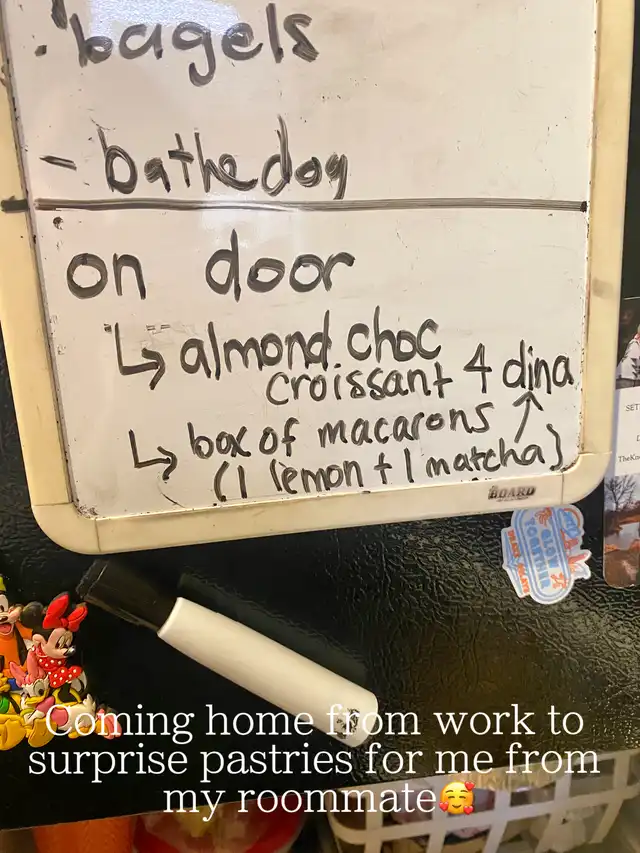 bagels
- bathe dog
on door
↳ almond choc
croissant 4 dina
↳ box of macarons ↑
(1 lemon + 1 matcha)
BOARD
SET
GLOW
TOGETHER
Coming home from work to
surprise pastries for me from
my roommate🥰